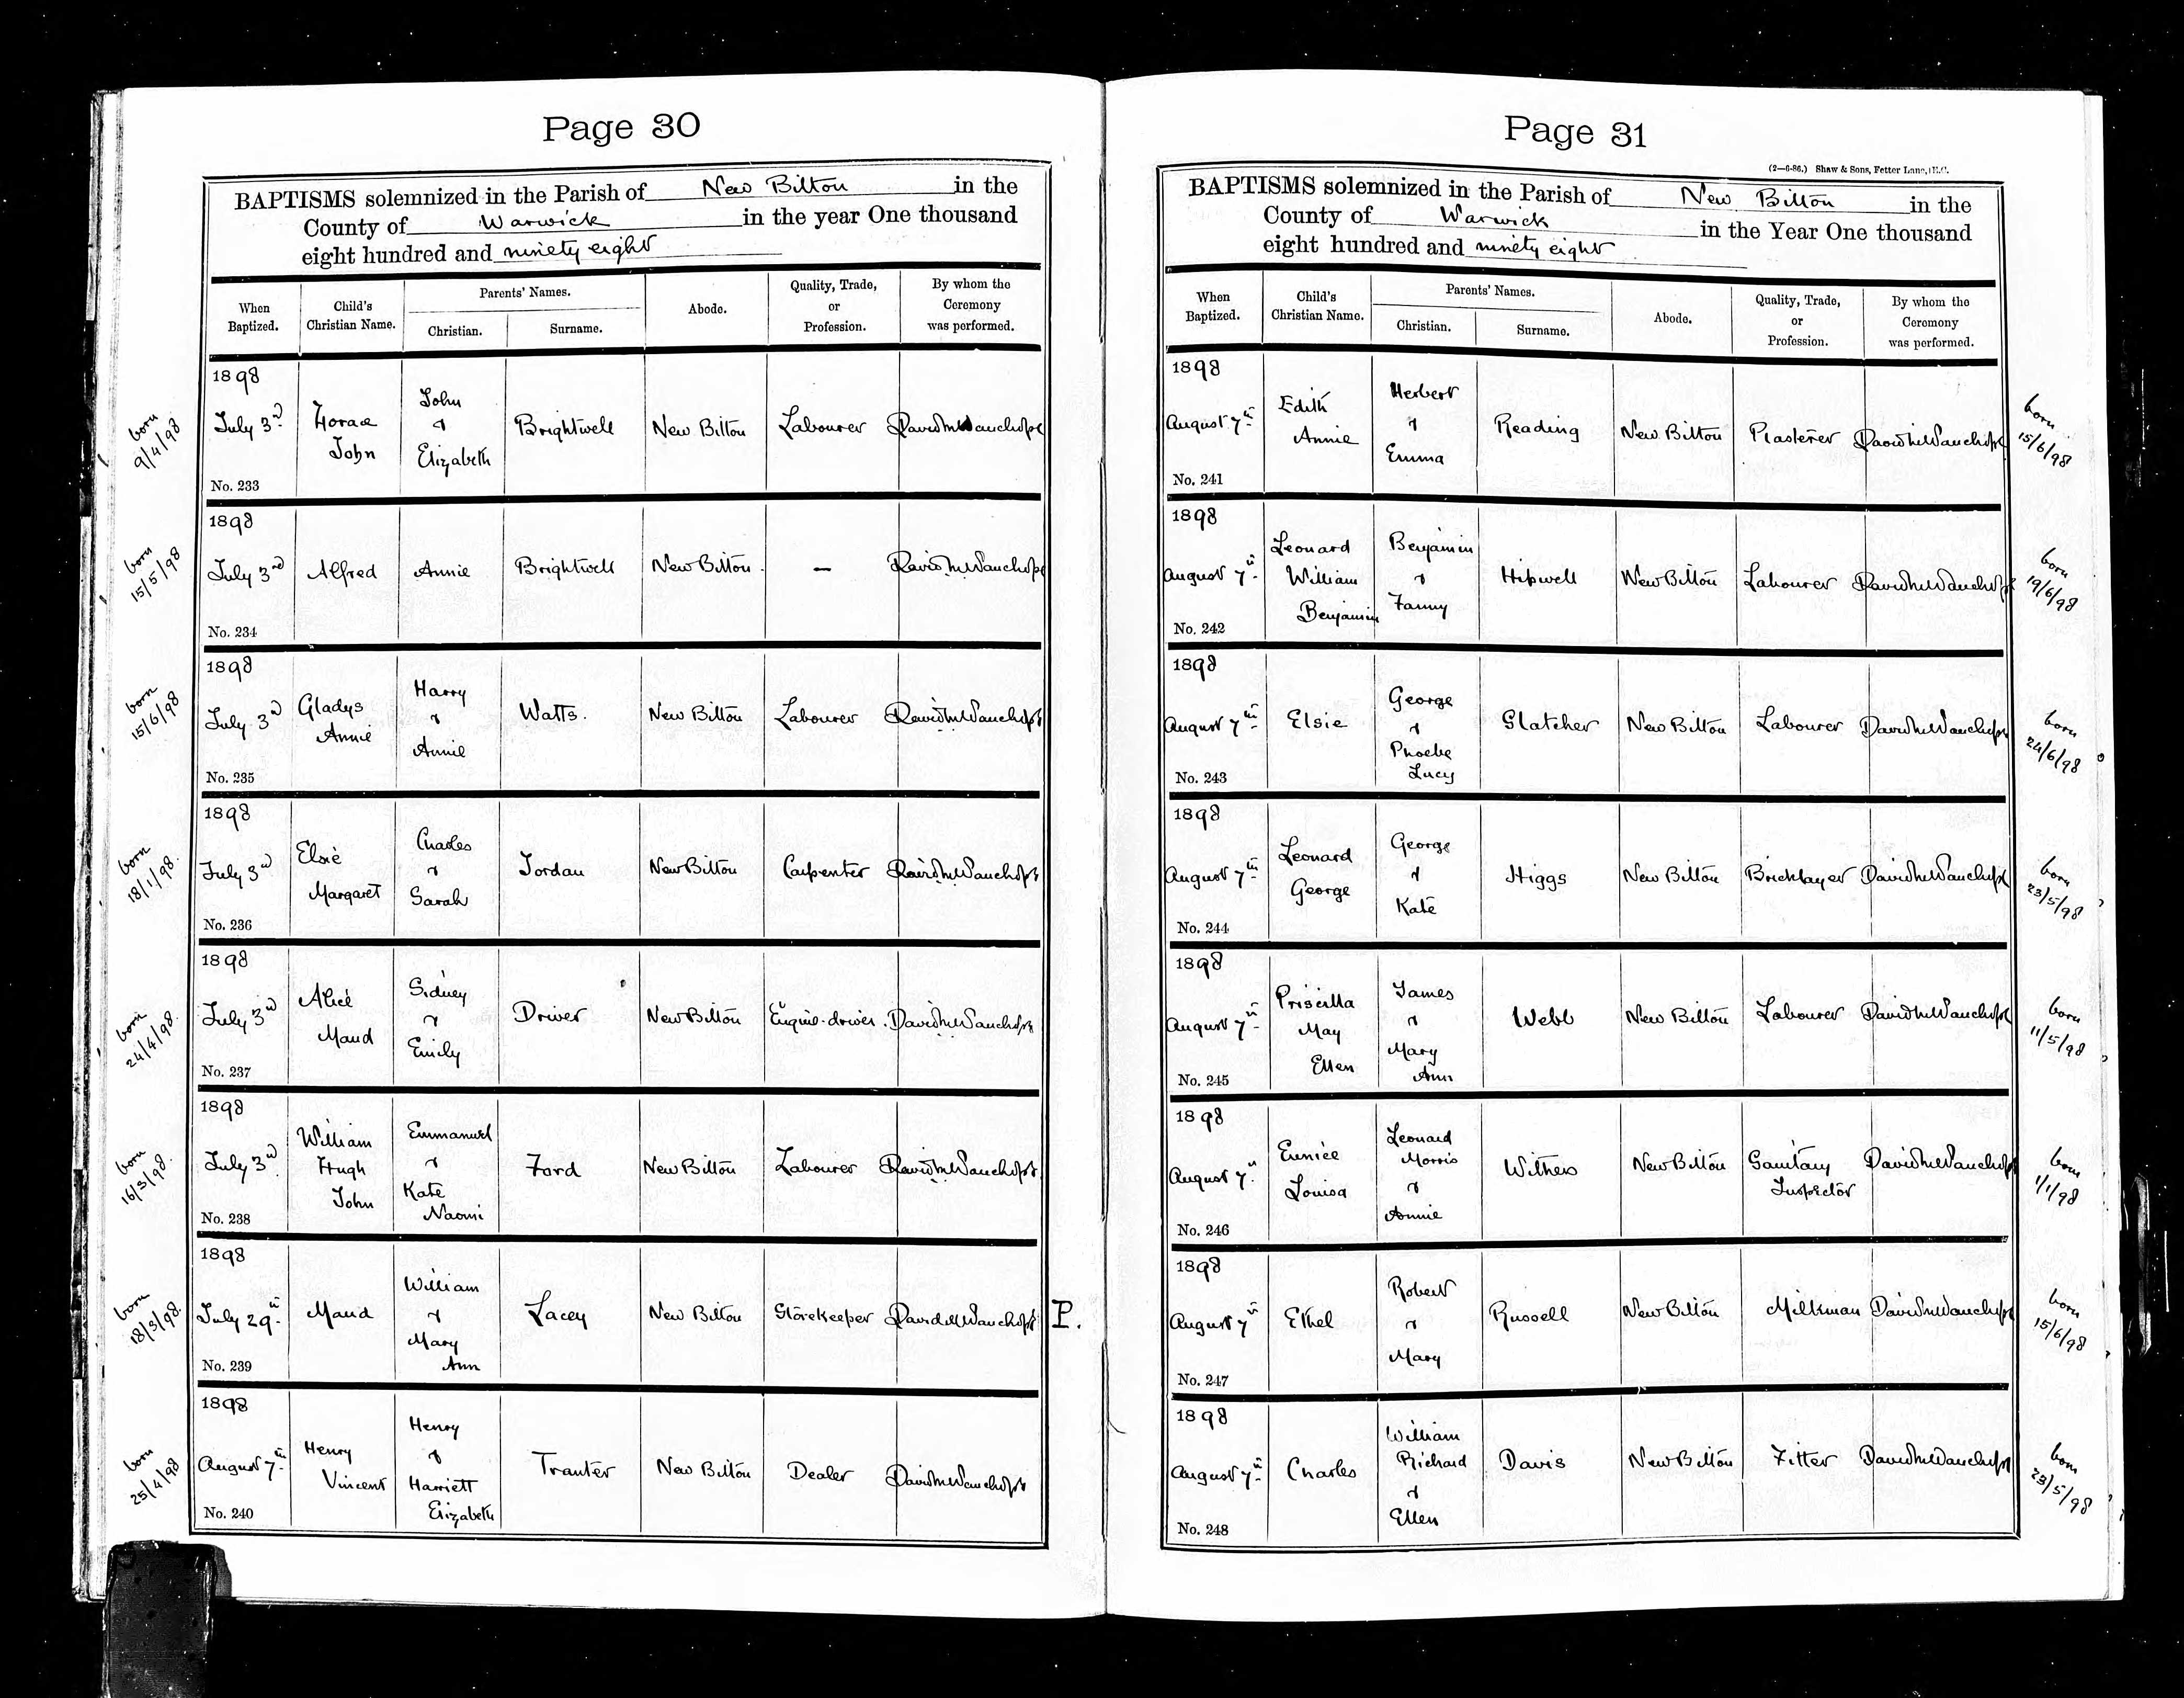 Page 30
BAPTISMS solemnized in the Parish of New Bilton in the
County of Warwick in the year One thousand
eight hundred and ninety eight
When Baptized. Child's Christian Name. Parents' Names. Christian. Surname. Abode. Quality, Trade, or Profession. By whom the Ceremony was performed.
born 9/4/98
1898 July 3rd Horace John John & Elizabeth Brightwell New Bilton Labourer David M Wauchope
No. 233
born 15/5/98
1898 July 3rd Alfred Annie Brightwell New Bilton. — David M Wauchope
No. 234
born 15/6/98
1898 July 3rd Gladys Annie Harry & Annie Watts. New Bilton Labourer David M Wauchope
No. 235
born 18/1/98.
1898 July 3rd Elsie Margaret Charles & Sarah Jordan New Bilton Carpenter David M Wauchope
No. 236
born 24/4/98.
1898 July 3rd Alice Maud Sidney & Emily Driver New Bilton Engine-driver. David M Wauchope
No. 237
born 16/3/98.
1898 July 3rd William Hugh John Emmanuel & Kate Naomi Ford New Bilton Labourer David M Wauchope
No. 238
born 18/3/98.
1898 July 29th Maud William & Mary Ann Lacey New Bilton Storekeeper David M Wauchope P.
No. 239
born 25/4/98
1898 August 7th Henry Vincent Henry & Harriett Elizabeth Tranter New Bilton Dealer David M Wauchope
No. 240
Page 31
(2—6-86.) Shaw & Sons, Fetter Lane, E.C.
BAPTISMS solemnized in the Parish of New Bilton in the
County of Warwick in the Year One thousand
eight hundred and ninety eight
When Baptized. Child's Christian Name. Parents' Names. Christian. Surname. Abode. Quality, Trade, or Profession. By whom the Ceremony was performed.
1898 August 7th Edith Annie Herbert & Emma Reading New Bilton Plasterer David M Wauchope
No. 241
born 15/6/98
1898 August 7th Leonard William Benjamin Benjamin & Fanny Hipwell New Bilton Labourer David M Wauchope
No. 242
born 19/6/98
1898 August 7th Elsie George & Phoebe Lucy Slatcher New Bilton Labourer David M Wauchope
No. 243
born 24/6/98
1898 August 7th Leonard George George & Kate Higgs New Bilton Bricklayer David M Wauchope
No. 244
born 23/5/98
1898 August 7th Priscilla May Ellen James & Mary Ann Webb New Bilton Labourer David M Wauchope
No. 245
born 11/5/98
1898 August 7th Eunice Louisa Leonard Morris & Annie Withers New Bilton Sanitary Inspector David M Wauchope
No. 246
born 1/1/98
1898 August 7th Ethel Robert & Mary Russell New Bilton Milkman David M Wauchope
No. 247
born 15/6/98
1898 August 7th Charles William Richard & Ellen Davis New Bilton Fitter David M Wauchope
No. 248
born 23/5/98